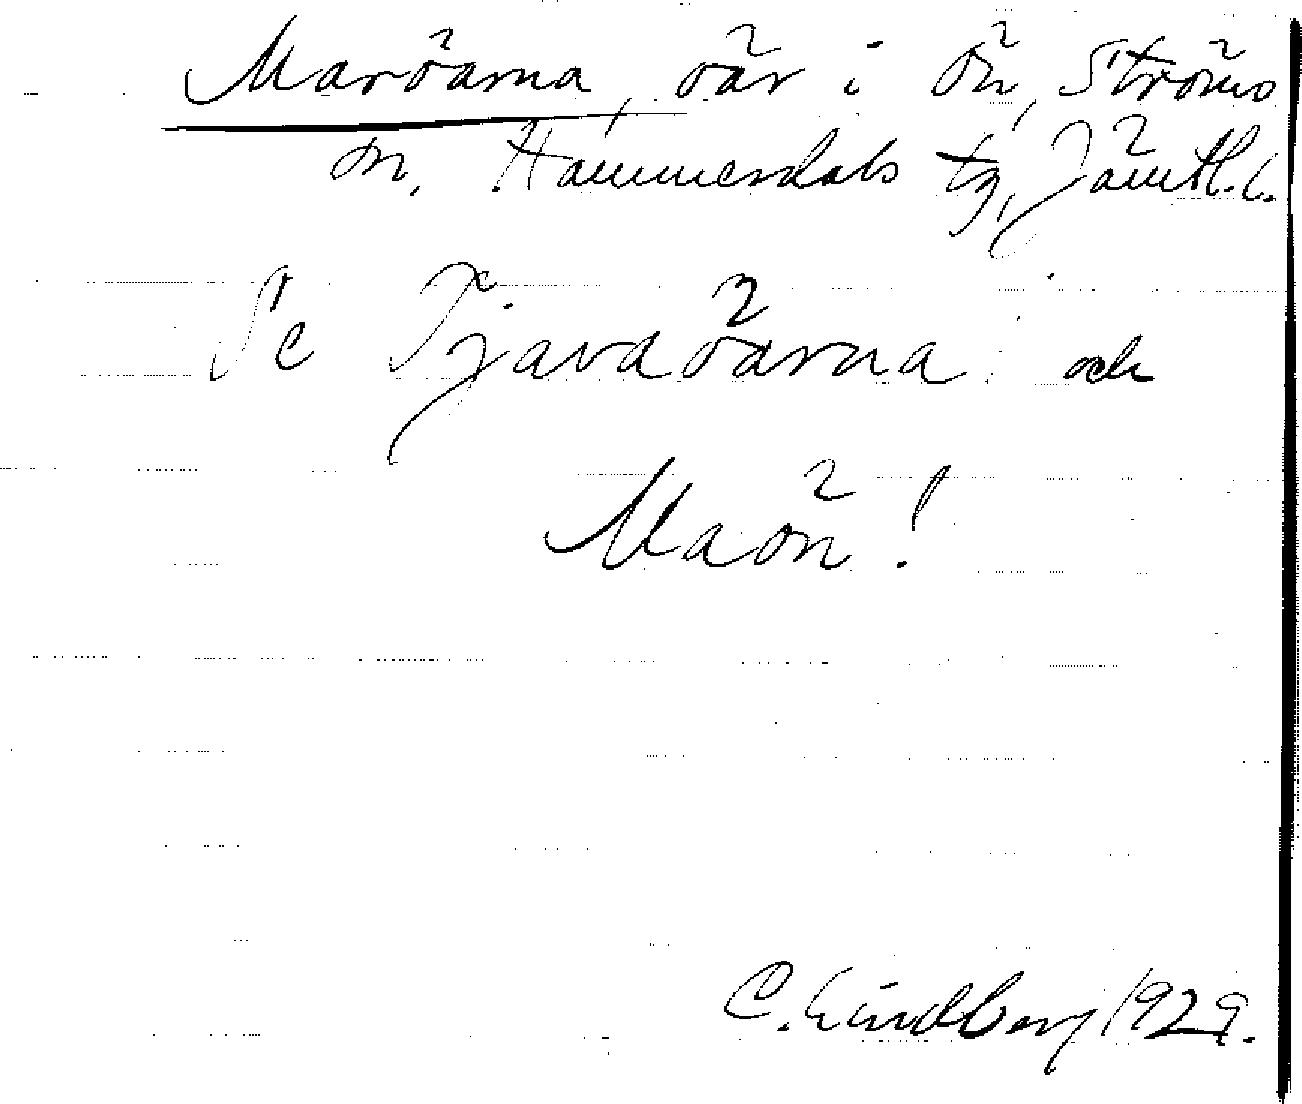 Maröarna, öar i Ön, Ströms
sn, Hammerdals tg, Jämtl. l.
Se Tjaraöarna och
Maön!
C. Lindberg 1929.